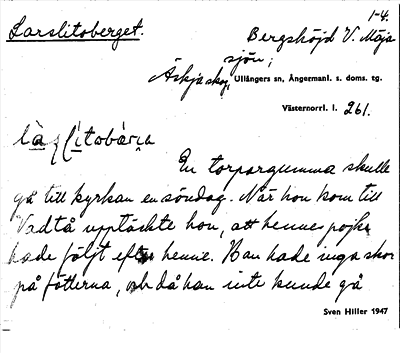 1-4.
Larslitoberget.
Bergshöjd V. Mäja
sjön;
Äskja skog, Ullångers sn, Ångermanl. s. doms. tg.
Västernorrl. l. 261.
En torpargumma skulle
gå till kyrkan en söndag. När hon kom till
Vadtå upptäckte hon, att hennes pojke
hade följt efter henne. Han hade inga skor
på fötterna, och då han inte kunde gå
Sven Hiller 1947